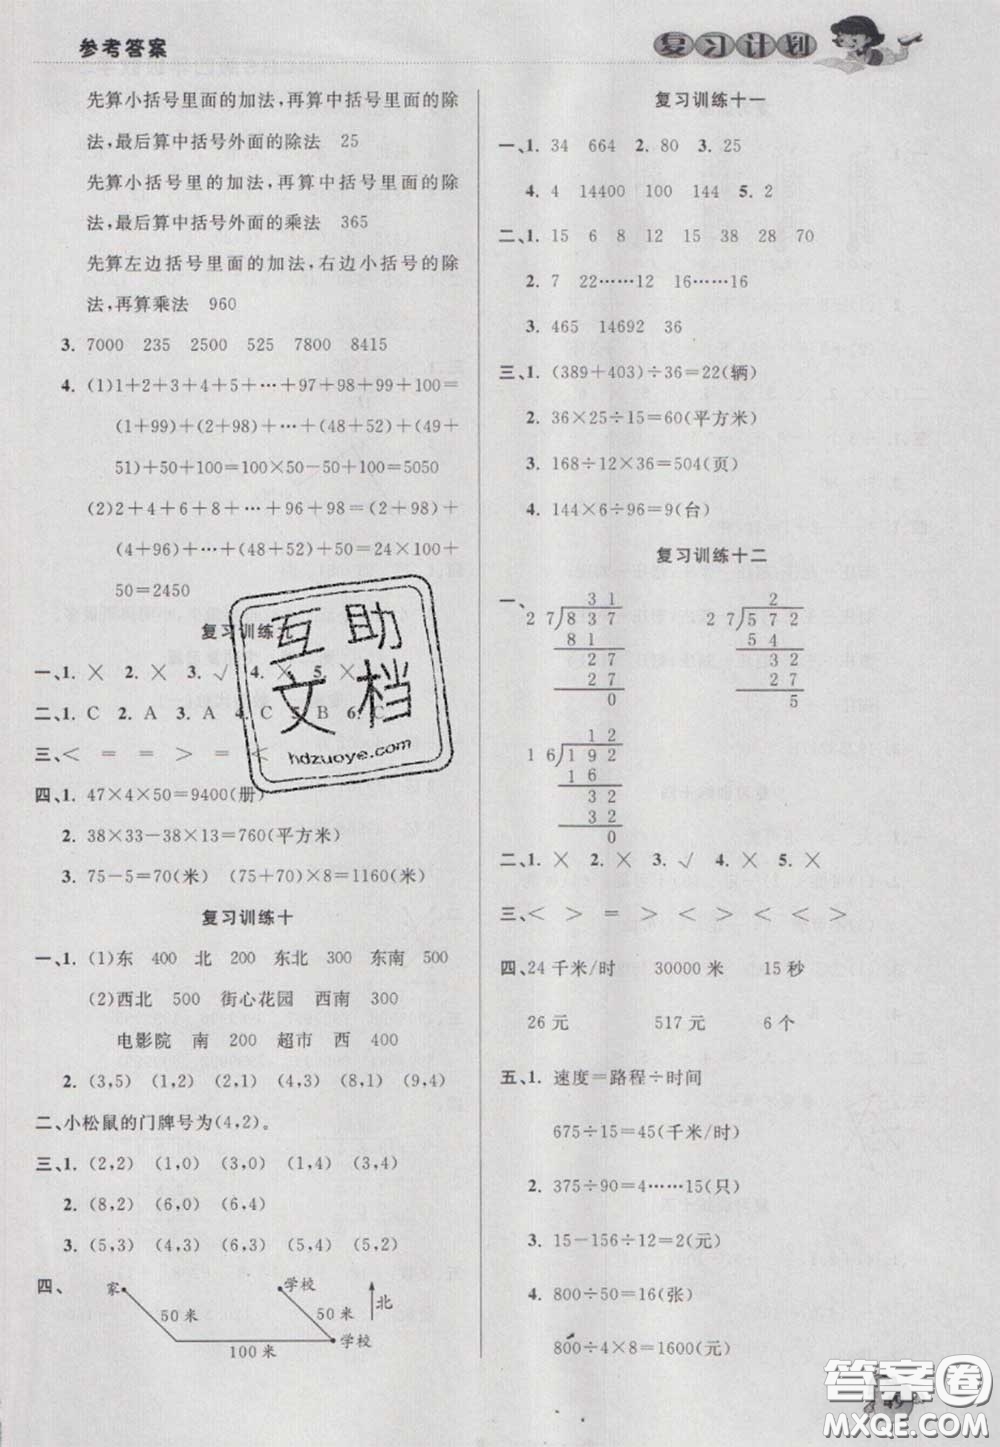 参考答案
复习计划
先算小括号里面的加法,再算中括号里面的除
法,最后算中括号外面的除法 25
先算小括号里的加法,再算中括号里面的除
法,最后算中括号外面的乘法 365
先算左边括号里面的加法,右边小括号的除
法,再算乘法 960
3. 7000 235 2500 525 7800 8415
4. (1)1+2+3+4+5+…+97+98+99+100=
(1+99)+(2+98)+…+(48+52)+(49+
51)+50+100=100×50-50+100=5050
(2)2+4+6+8+…+96+98=(2+98)+
(4+96)+…+(48+52)+50=24×100+
50=2450
复习训练九
一、1. × 2. × 3. √ 4. × 5. ×
二、1. C 2. A 3. A 4. C 5. B 6. C
三、< = = > = <
四、1. 47×4×50=9400(册)
2. 38×33-38×13=760(平方米)
3. 75-5=70(米) (75+70)×8=1160(米)
复习训练十
一、1. (1)东 400 北 200 东北 300 东南 500
(2)西北 500 街心花园 西南 300
电影院 南 200 超市 西 400
2. (3,5) (1,2) (2,1) (4,3) (8,1) (9,4)
二、小松鼠的门牌号为(4,2)。
三、1. (2,2) (1,0) (3,0) (1,4) (3,4)
2. (8,2) (6,0) (6,4)
3. (5,3) (4,3) (6,3) (5,4) (5,2)
四、
家 学校
50米 50米 北
学校
100米
复习训练十一
一、1. 34 664 2. 80 3. 25
4. 4 14400 100 144 5. 2
二、1. 15 6 8 12 15 38 28 70
2. 7 22……12 16……16
3. 465 14692 36
三、1. (389+403)÷36=22(辆)
2. 36×25÷15=60(平方米)
3. 168÷12×36=504(页)
4. 144×6÷96=9(台)
复习训练十二
一、
31 2
27 837 27 572
81 54
27 32
27 27
0 5
12
16 192
16
32
32
0
二、1. × 2. × 3. √ 4. × 5. ×
三、< > = > < > < < >
四、24千米/时 30000米 15秒
26元 517元 6个
五、1. 速度=路程÷时间
675÷15=45(千米/时)
2. 375÷90=4……15(只)
3. 15-156÷12=2(元)
4. 800÷50=16(张)
800÷4×8=1600(元)
互助
文档
hdzuoye.com
答案圈
MXQE.COM